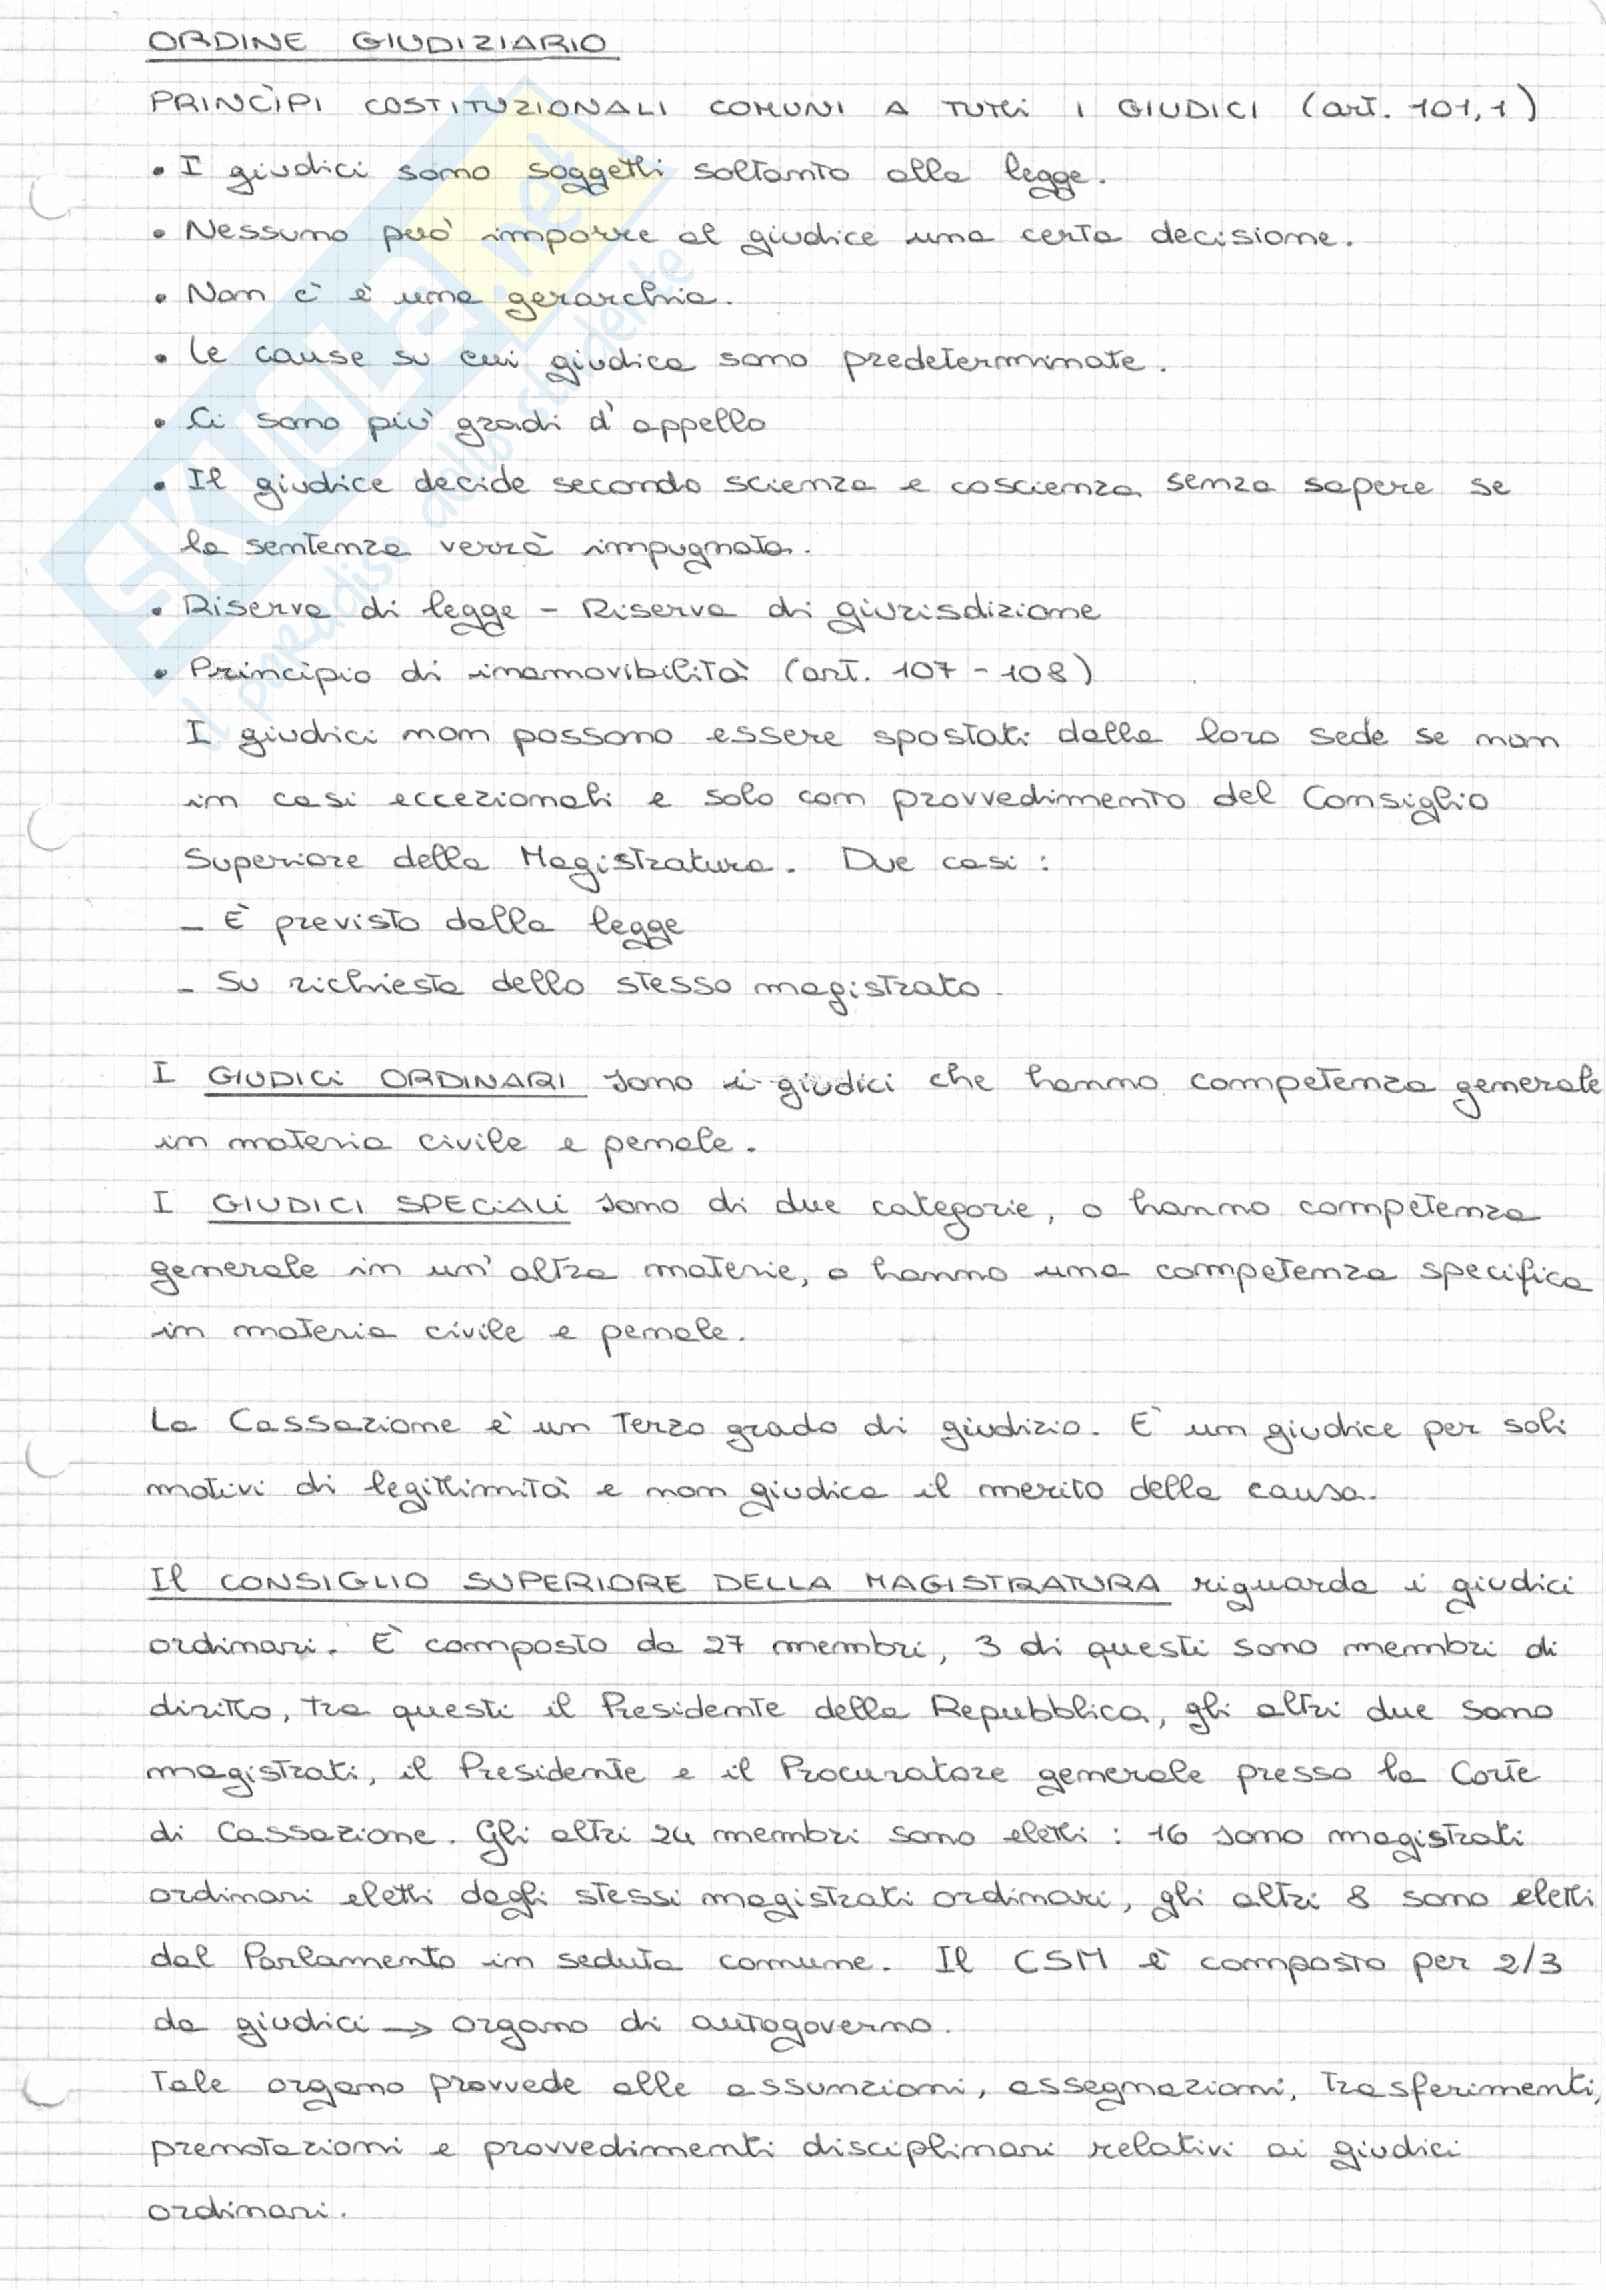 ORDINE GIUDIZIARIO
PRINCÌPI COSTITUZIONALI COMUNI A TUTTI I GIUDICI (art. 101,1)
• I giudici sono soggetti soltanto alla legge.
• Nessuno può imporre al giudice una certa decisione.
• Non c'è una gerarchia.
• Le cause su cui giudica sono predeterminate.
• Ci sono più gradi d'appello
• Il giudice decide secondo scienza e coscienza senza sapere se
la sentenza verrà impugnata.
• Riserva di legge – Riserva di giurisdizione
• Principio di inamovibilità (art. 107 - 108)
I giudici non possono essere spostati dalla loro sede se non
in casi eccezionali e solo con provvedimento del Consiglio
Superiore della Magistratura. Due casi:
– È previsto dalla legge
– Su richiesta dello stesso magistrato.
I GIUDICI ORDINARI sono i giudici che hanno competenza generale
in materia civile e penale.
I GIUDICI SPECIALI sono di due categorie, o hanno competenza
generale in un'altra materie, o hanno una competenza specifica
in materia civile e penale.
La Cassazione è un terzo grado di giudizio. E' un giudice per soli
motivi di legittimità e non giudica il merito della causa.
Il CONSIGLIO SUPERIORE DELLA MAGISTRATURA riguarda i giudici
ordinari. È composto da 27 membri, 3 di questi sono membri di
diritto, tra questi il Presidente della Repubblica, gli altri due sono
magistrati, il Presidente e il Procuratore generale presso la Corte
di Cassazione. Gli altri 24 membri sono eletti: 16 sono magistrati
ordinari eletti dagli stessi magistrati ordinari, gli altri 8 sono eletti
dal Parlamento in seduta comune. Il CSM è composto per 2/3
da giudici → organo di autogoverno.
Tale organo provvede alle assunzioni, assegnazioni, trasferimenti,
prenotazioni e provvedimenti disciplinari relativi ai giudici
ordinari.
SKUOLA.net
il paradiso dello studente